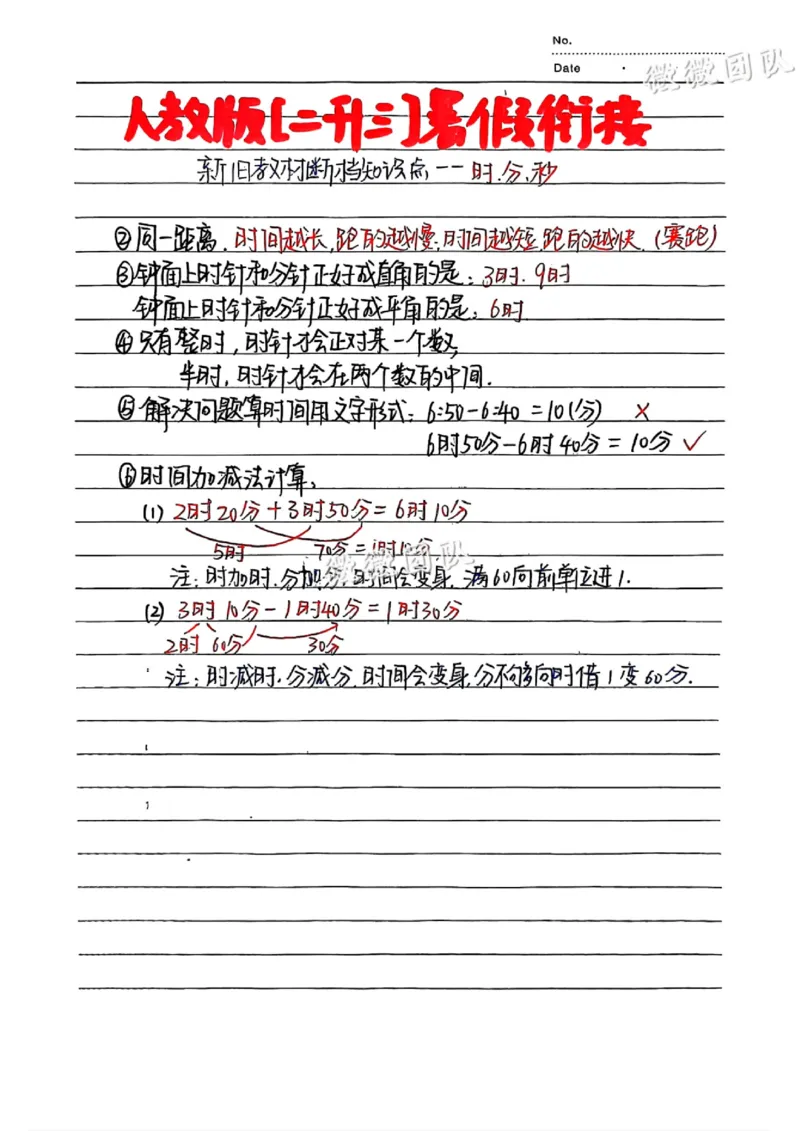 No.
Date
微微团队
人教版[二升三]暑假衔接
新旧教材断档知识点--时.分.秒
②同一距离.时间越长,跑的越慢,时间越短,跑的越快.(赛跑)
③钟面上时针和分针正好成直角的是:3时.9时
钟面上时针和分针正好成平角的是:6时
④只有整时,时针才会正对某一个数,
半时,时针才会在两个数的中间.
⑤解决问题算时间用文字形式:6:50-6:40=10(分) ×
6时50分-6时40分=10分 ✓
⑥时间加减法计算,
(1) 2时20分+3时50分=6时10分
5时 70分=1时10分
微微团队
注:时加时.分加分.时间会变身.满60向前单位进1.
(2) 3时10分-1时40分=1时30分
2时 60分 30分
注:时减时.分减分.时间会变身,分不够向时借1变60分.